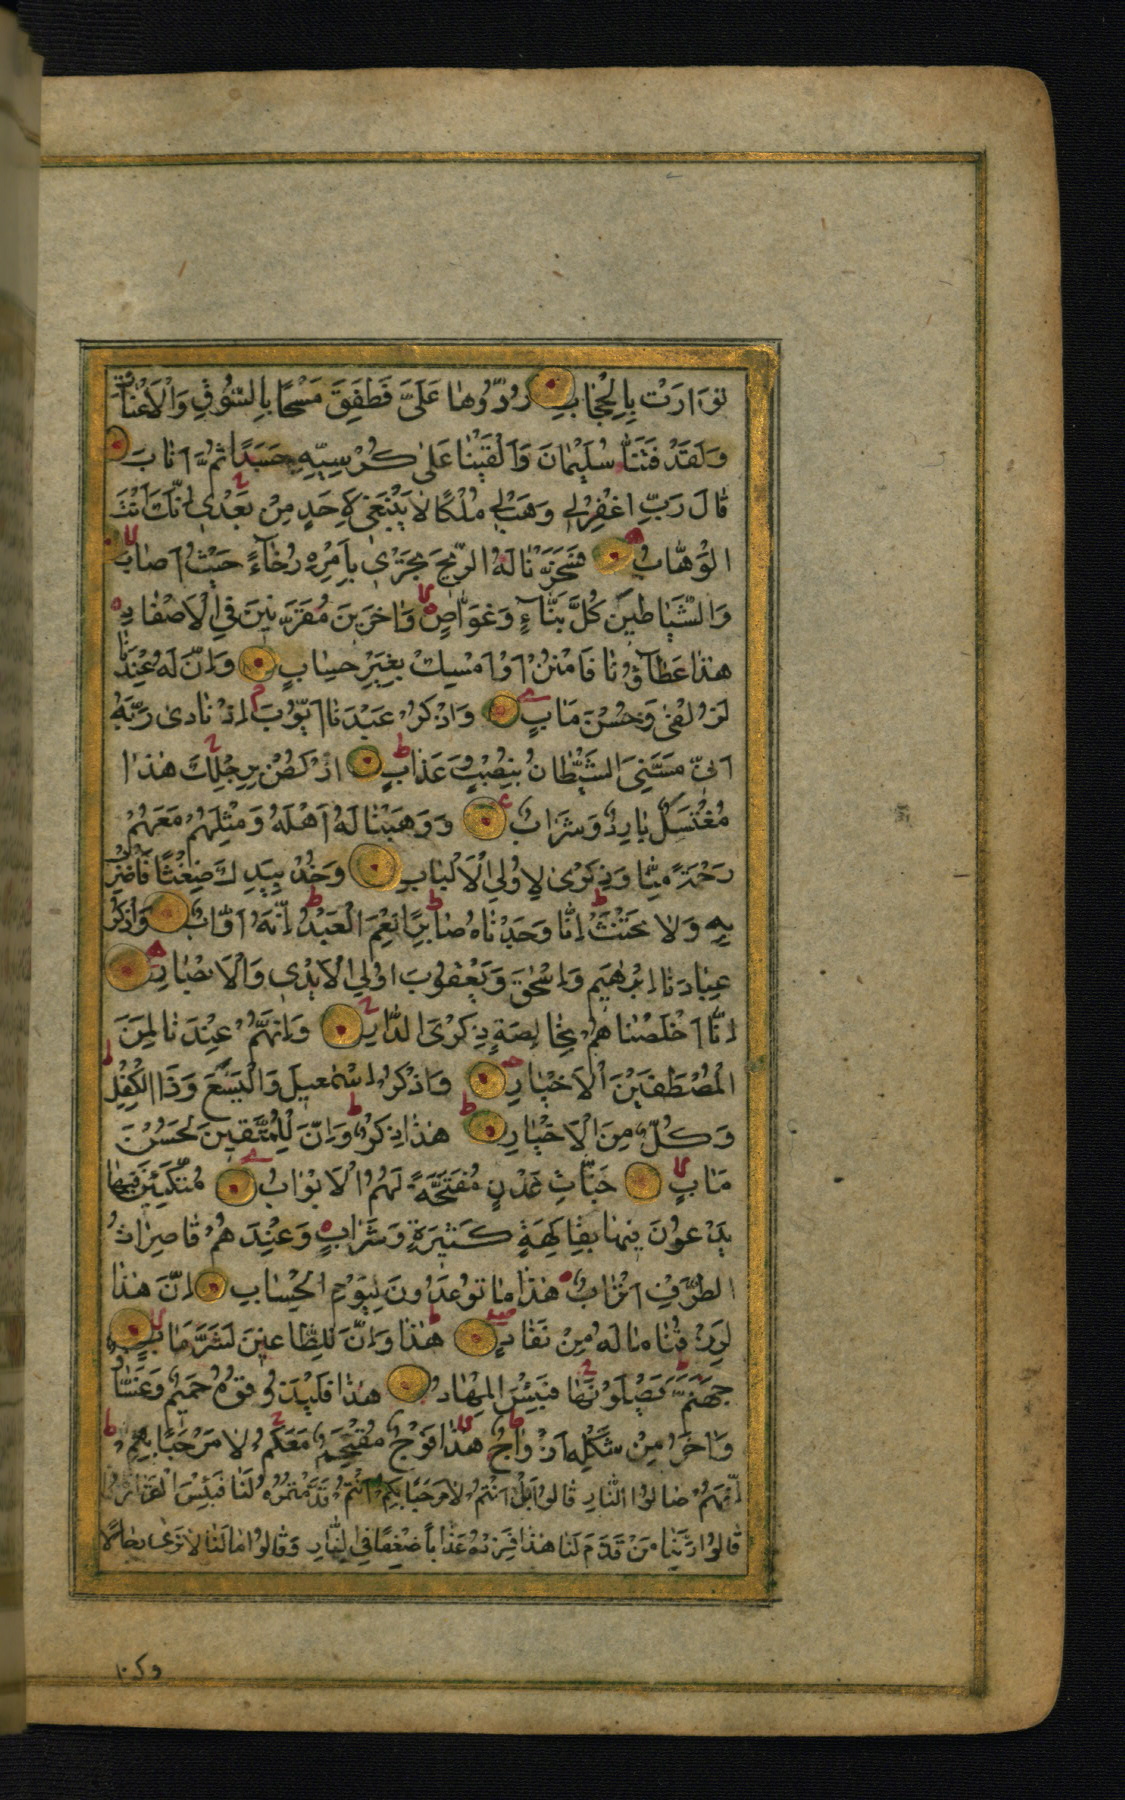 تَوَارَتْ بِالْحِجَابِ رُدُّوهَا عَلَيَّ فَطَفِقَ مَسْحًا بِالسُّوقِ وَالْأَعْنَاقِ
وَلَقَدْ فَتَنَّا سُلَيْمَانَ وَأَلْقَيْنَا عَلَى كُرْسِيِّهِ جَسَدًا ثُمَّ أَنَابَ
قَالَ رَبِّ اغْفِرْ لِي وَهَبْ لِي مُلْكًا لَا يَنْبَغِي لِأَحَدٍ مِنْ بَعْدِي إِنَّكَ أَنْتَ
الْوَهَّابُ فَسَخَّرْنَا لَهُ الرِّيحَ تَجْرِي بِأَمْرِهِ رُخَاءً حَيْثُ أَصَابَ
وَالشَّيَاطِينَ كُلَّ بَنَّاءٍ وَغَوَّاصٍ وَآخَرِينَ مُقَرَّنِينَ فِي الْأَصْفَادِ
هَذَا عَطَاؤُنَا فَامْنُنْ أَوْ أَمْسِكْ بِغَيْرِ حِسَابٍ وَإِنَّ لَهُ عِنْدَنَا
لَزُلْفَى وَحُسْنَ مَآبٍ وَاذْكُرْ عَبْدَنَا أَيُّوبَ إِذْ نَادَى رَبَّهُ
أَنِّي مَسَّنِيَ الشَّيْطَانُ بِنُصْبٍ وَعَذَابٍ ارْكُضْ بِرِجْلِكَ هَذَا
مُغْتَسَلٌ بَارِدٌ وَشَرَابٌ وَوَهَبْنَا لَهُ أَهْلَهُ وَمِثْلَهُمْ مَعَهُمْ
رَحْمَةً مِنَّا وَذِكْرَى لِأُولِي الْأَلْبَابِ وَخُذْ بِيَدِكَ ضِغْثًا فَاضْرِبْ
بِهِ وَلَا تَحْنَثْ إِنَّا وَجَدْنَاهُ صَابِرًا نِعْمَ الْعَبْدُ إِنَّهُ أَوَّابٌ وَاذْكُرْ
عِبَادَنَا إِبْرَاهِيمَ وَإِسْحَقَ وَيَعْقُوبَ أُولِي الْأَيْدِي وَالْأَبْصَارِ
إِنَّا أَخْلَصْنَاهُمْ بِخَالِصَةٍ ذِكْرَى الدَّارِ وَإِنَّهُمْ عِنْدَنَا لَمِنَ
الْمُصْطَفَيْنَ الْأَخْيَارِ وَاذْكُرْ إِسْمَعِيلَ وَالْيَسَعَ وَذَا الْكِفْلِ
وَكُلٌّ مِنَ الْأَخْيَارِ هَذَا ذِكْرٌ وَإِنَّ لِلْمُتَّقِينَ لَحُسْنَ
مَآبٍ جَنَّاتِ عَدْنٍ مُفَتَّحَةً لَهُمُ الْأَبْوَابُ مُتَّكِئِينَ فِيهَا
يَدْعُونَ فِيهَا بِفَاكِهَةٍ كَثِيرَةٍ وَشَرَابٍ وَعِنْدَهُمْ قَاصِرَاتُ
الطَّرْفِ أَتْرَابٌ هَذَا مَا تُوعَدُونَ لِيَوْمِ الْحِسَابِ إِنَّ هَذَا
لَرِزْقُنَا مَا لَهُ مِنْ نَفَادٍ هَذَا وَإِنَّ لِلطَّاغِينَ لَشَرَّ مَآبٍ
جَهَنَّمَ يَصْلَوْنَهَا فَبِئْسَ الْمِهَادُ هَذَا فَلْيَذُوقُوهُ حَمِيمٌ وَغَسَّاقٌ
وَآخَرُ مِنْ شَكْلِهِ أَزْوَاجٌ هَذَا فَوْجٌ مُقْتَحِمٌ مَعَكُمْ لَا مَرْحَبًا بِهِمْ
إِنَّهُمْ صَالُوا النَّارِ قَالُوا بَلْ أَنْتُمْ لَا مَرْحَبًا بِكُمْ أَنْتُمْ قَدَّمْتُمُوهُ لَنَا فَبِئْسَ الْقَرَارُ
قَالُوا رَبَّنَا مَنْ قَدَّمَ لَنَا هَذَا فَزِدْهُ عَذَابًا ضِعْفًا فِي النَّارِ وَقَالُوا مَا لَنَا لَا نَرَى رِجَالًا